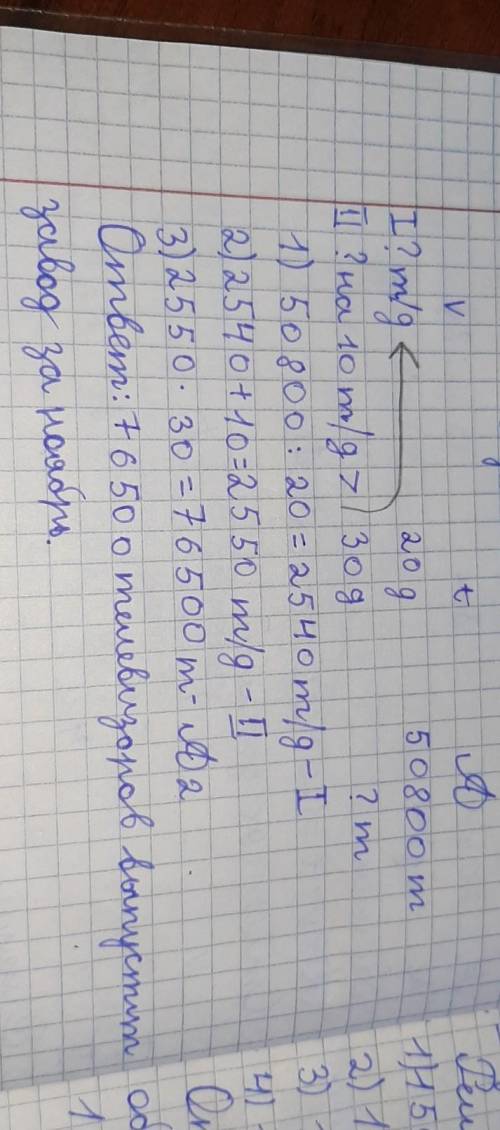 v t A
I ? т/д 20д 50800 т
II ? на 10 т/д > 30д ? т
1) 50800 : 20 = 2540 т/д - I
2) 2540 + 10 = 2550 т/д - II
3) 2550 · 30 = 76500 т - A2
Ответ: 76500 телевизоров выпустит
завод за ноябрь.
1) 15
2) 1
3)
4)
1